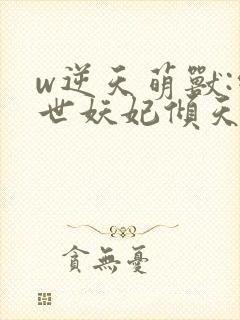 w逆天萌獸:
世妖妃傾天
貪無憂